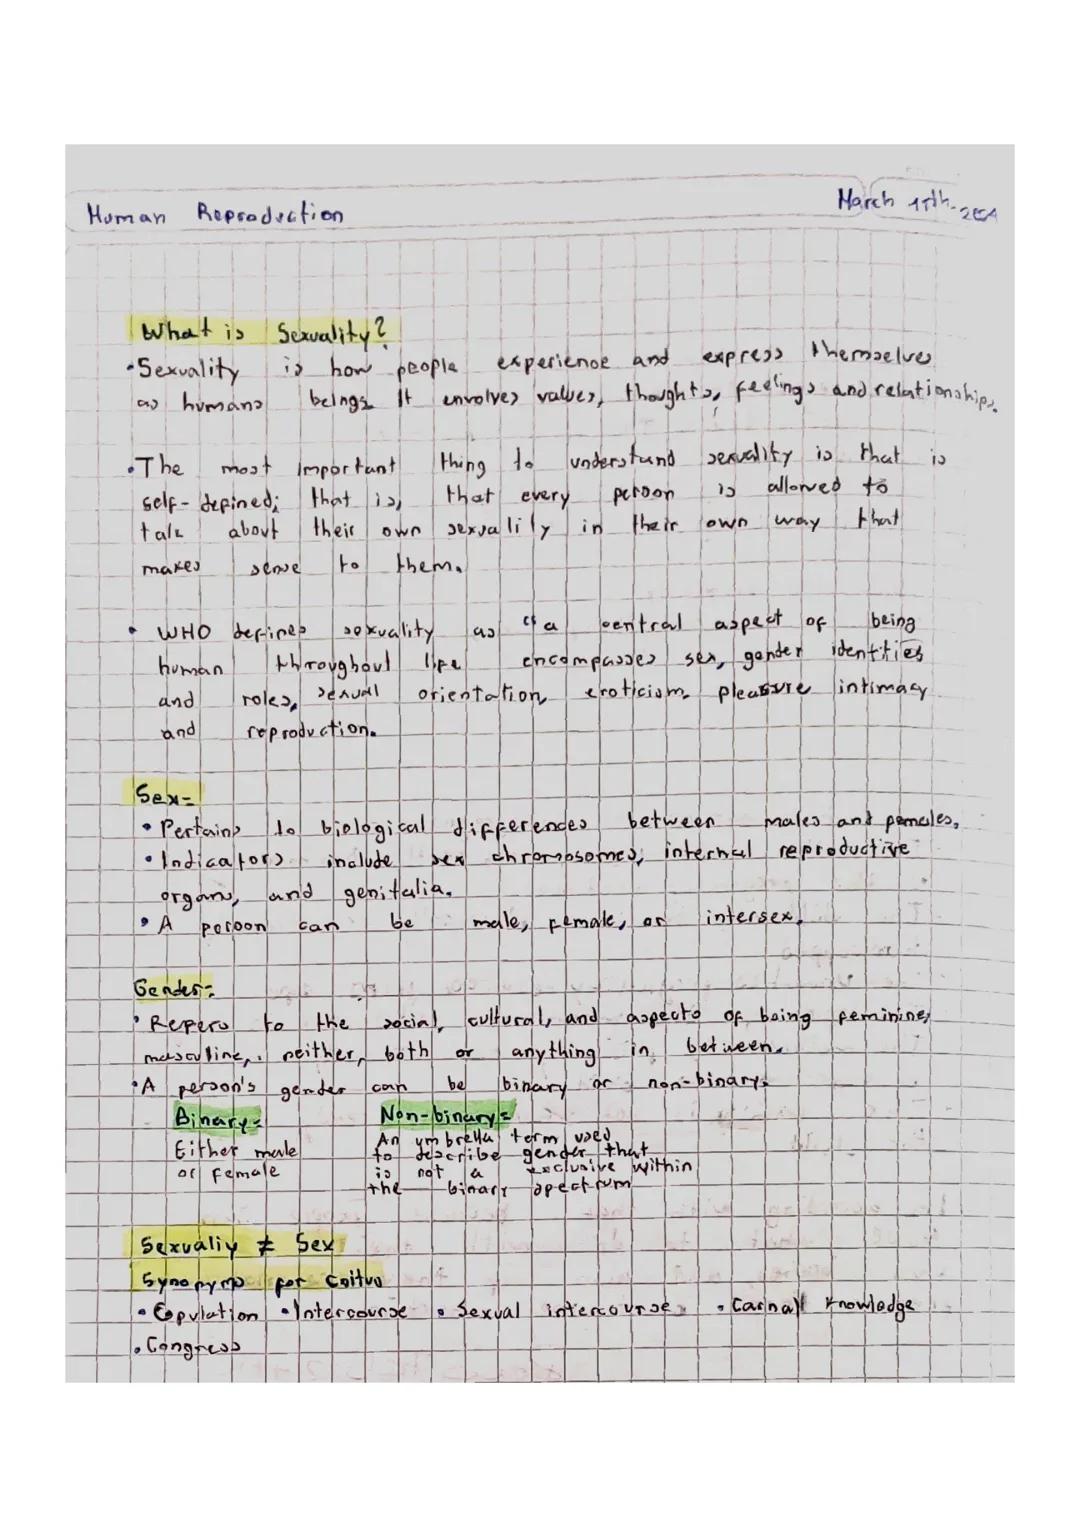 Human Reproduction
March 15th-2024
What is Sexuality?
•Sexuality is how people experience and express themselves
as humans beings. It envolves values, thoughts, feelings and relationships.
•The most important thing to understand sexuality is that is
self-defined; that is, that every person is allowed to
talk about their own sexuality in their own way that
makes sense to them.
• WHO defines sexuality as "a central aspect of being
human throughout life encompasses sex, gender identities
and roles, sexual orientation, eroticism, pleasure intimacy
and reproduction.
Sex=
• Pertains to biological differences between males and females.
• Indicators include sex chromosomes, internal reproductive
organs, and genitalia.
• A person can be male, female, or intersex.
Gender=
• Refers to the social, cultural, and aspects of being feminine,
masculine, neither, both or anything in between.
•A person's gender can be binary or non-binary.
Binary=
Non-binary=
Either male
or female
An umbrella term used
to describe gender that
is not a exclusive within
the binary spectrum
Sexualiy ≠ Sex
Synonyms for Coitus
• Copulation • Intercourse • Sexual intercourse • Carnall knowledge
• Congress